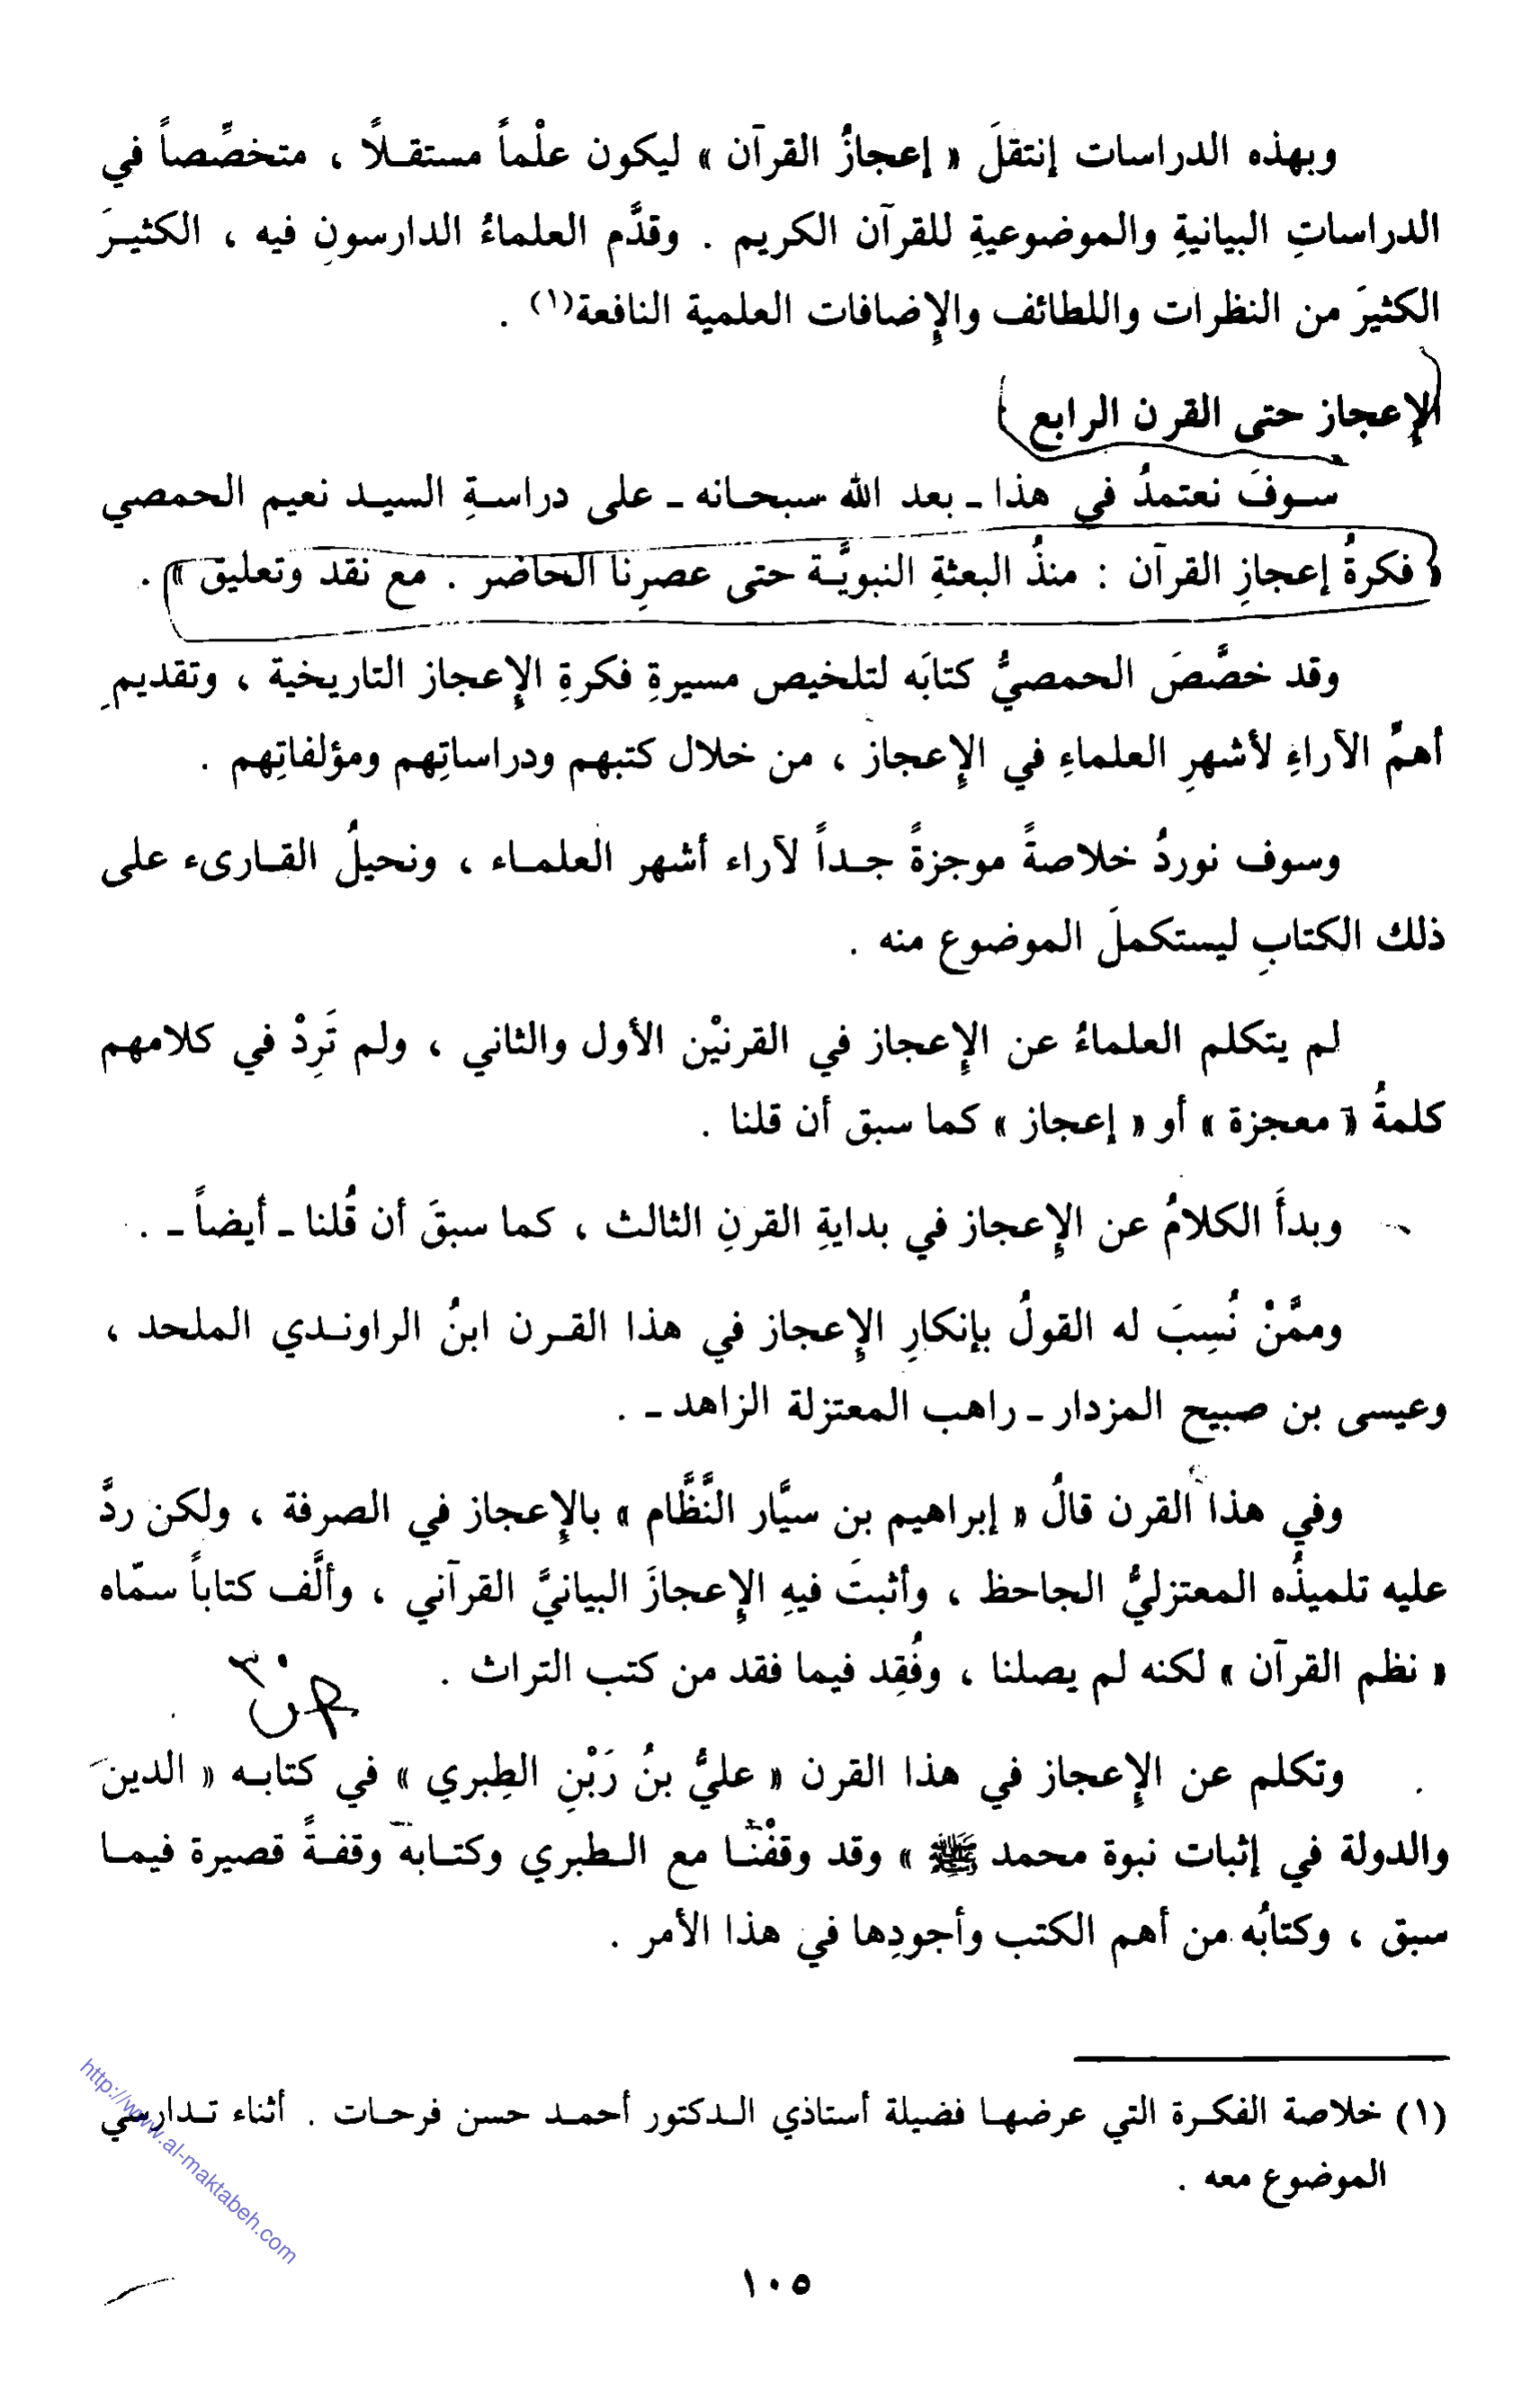 وبهذه الدراسات إنتقلَ « إعجازُ القرآن » ليكون علْماً مستقـلاً ، متخصِّصاً في
الدراساتِ البيانيةِ والموضوعيةِ للقرآن الكريم . وقدَّم العلماءُ الدارسون فيه ، الكثيـرَ
الكثيرَ من النظرات واللطائف والإضافات العلمية النافعة(١) .
الإعجاز حتى القرن الرابع
سـوفَ نعتمدُ في هذا ـ بعد الله سبحـانه ـ على دراسـةِ السيـد نعيم الحمصي
« فكرةُ إعجازِ القرآن : منذُ البعثةِ النبويَّـة حتى عصرِنا الحاضر . مع نقد وتعليق » .
وقد خصَّصَ الحمصيُّ كتابَه لتلخيص مسيرةِ فكرةِ الإعجاز التاريخية ، وتقديمِ
أهمِّ الآراءِ لأشهرِ العلماءِ في الإعجاز ، من خلال كتبهم ودراساتِهم ومؤلفاتِهم .
وسوف نوردُ خلاصةً موجزةً جـداً لآراء أشهر العلمـاء ، ونحيلُ القـارىء على
ذلك الكتابِ ليستكملَ الموضوع منه .
لم يتكلم العلماءُ عن الإعجاز في القرنيْن الأول والثاني ، ولم تَرِدْ في كلامهم
كلمةُ « معجزة » أو « إعجاز » كما سبق أن قلنا .
وبدأَ الكلامُ عن الإعجاز في بدايةِ القرنِ الثالث ، كما سبقَ أن قُلنا ـ أيضاً ـ .
وممَّنْ نُسِبَ له القولُ بإنكارِ الإعجاز في هذا القـرن ابنُ الراونـدي الملحد ،
وعيسى بن صبيح المزدار ـ راهب المعتزلة الزاهد ـ .
وفي هذا القرن قالُ « إبراهيم بن سيَّار النَّظَّام » بالإعجاز في الصرفة ، ولكن ردَّ
عليه تلميذُه المعتزليُّ الجاحظ ، وأثبتَ فيهِ الإعجازَ البيانيَّ القرآني ، وألَّف كتاباً سمّاه
« نظم القرآن » لكنه لم يصلنا ، وفُقِد فيما فقد من كتب التراث .
وتكلم عن الإعجاز في هذا القرن « عليُّ بنُ رَبْنِ الطبري » في كتابـه « الدين
والدولة في إثبات نبوة محمد ﷺ » وقد وقفْنـا مع الـطبري وكتـابه وقفـةً قصيرة فيمـا
سبق ، وكتابُه من أهم الكتب وأجودِها في هذا الأمر .
(١) خلاصة الفكـرة التي عرضهـا فضيلة أستاذي الـدكتور أحمـد حسن فرحـات . أثناء تـدارسي
الموضوع معه .
http://www.al-maktabeh.com
١٠٥